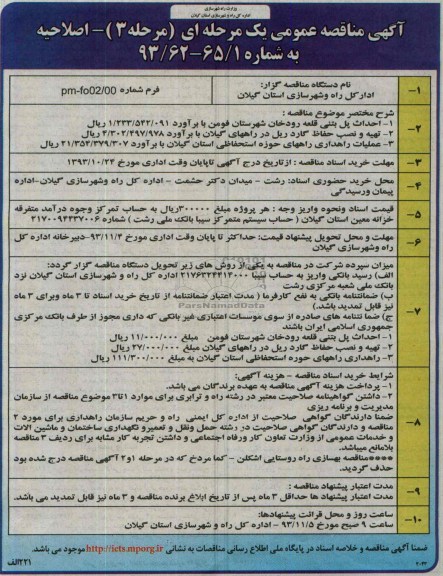 وزارت راه و شهرسازی
اداره کل راه و شهرسازی استان گیلان
آگهی مناقصه عمومی یک مرحله ای (مرحله۳)- اصلاحیه
به شماره ۶۵/۱-۹۳/۶۲
۱- نام دستگاه مناقصه گزار: فرم شماره pm-fo02/00
ادارکل راه وشهرسازی استان گیلان
۲- شرح مختصر موضوع مناقصه :
۱- احداث پل بتنی قلعه رودخان شهرستان فومن با برآورد ۱/۲۳۳/۵۴۲/۰۹۱ ریال
۲- تهیه و نصب حفاظ گارد ریل در راههای گیلان با برآورد ۴/۳۰۲/۴۹۷/۹۷۸ ریال
۳- عملیات راهداری راههای حوزه استحفاظی استان گیلان با برآورد ۲۱/۳۵۴/۳۷۹/۳۰۷ ریال
۳- مهلت خرید اسناد مناقصه : ازتاریخ درج آگهی تاپایان وقت اداری مورخ ۱۳۹۳/۱۰/۲۴
۴- محل خرید حضوری اسناد: رشت - میدان دکتر حشمت - اداره کل راه وشهرسازی گیلان-اداره
پیمان ورسیدگی
۵- قیمت اسناد ونحوه واریز وجه : هر پروژه مبلغ ۳۰۰۰۰۰ریال به حساب تمرکز وجوه درآمد متفرقه
خزانه معین استان گیلان ( حساب سیستم متمرکز سیبا بانک ملی رشت ) شماره ۲۱۷۰۰۹۴۳۳۷۰۰۶
۶- مهلت و محل تحویل پیشنهاد قیمت: حداکثر تا پایان وقت اداری مورخ ۹۳/۱۱/۴-دبیرخانه اداره کل
راه وشهرسازی گیلان
۷- میزان سپرده شرکت در مناقصه به یکی از روش های زیر تحویل دستگاه مناقصه گزار گردد:
الف) رسید بانکی واریز به حساب شیبا ۲۱۷۶۳۲۴۴۱۲۰۰۰ اداره کل راه و شهرسازی استان گیلان نزد
بانک ملی شعبه مرکزی رشت
ب) ضمانتنامه بانکی به نفع کارفرما ( مدت اعتبار ضمانتنامه از تاریخ خرید اسناد تا ۳ ماه وبرای ۳ ماه
نیز قابل تمدید باشد.)
ج) ضمانتنامه های صادره از سوی موسسات اعتباری غیر بانکی که داری مجوز از طرف بانک مرکزی
جمهوری اسلامی ایران باشند
۱- احداث پل بتنی قلعه رودخان شهرستان فومن مبلغ ۱۱/۰۰۰/۰۰۰ ریال
۲- تهیه و نصب حفاظ گارد ریل در راههای گیلان مبلغ ۲۷/۰۰۰/۰۰۰ ریال
۳- راهداری راههای حوزه استحفاظی استان گیلان به مبلغ ۱۱۱/۳۰۰/۰۰۰ ریال
۸- شرایط خرید اسناد مناقصه - هزینه آگهی:
۱- پرداخت هزینه آگهی مناقصه به عهده برندگان می باشد.
۲- داشتن گواهینامه صلاحیت معتبر در رشته راه و ترابری برای موارد ۱تا۳ موضوع مناقصه از سازمان
مدیریت و برنامه ریزی
ضمنا دارندگان گواهی صلاحیت از اداره کل ایمنی راه و حریم سازمان راهداری برای مورد ۲
مناقصه و دارندگان گواهی صلاحیت در رشته حمل ونقل و تعمیرو نگهداری ساختمان و ماشین آلات
و خدمات عمومی از وزارت تعاون کار ورفاه اجتماعی و داشتن تجربه کار مشابه برای ردیف ۳ مناقصه
بلامانع میباشد.
****مناقصه بهسازی راه روستایی اشکلن - کما مردخ که در مرحله ۱و۲ آگهی مناقصه درج شده بود
حذف گردید.
۹- مدت اعتبار پیشنهاد مناقصه :
مدت اعتبار پیشنهاد ها حداقل ۳ ماه پس از تاریخ ابلاغ برنده مناقصه و ۳ ماه نیز قابل تمدید می باشد.
۱۰- ساعت روز و محل قرائت پیشنهادها:
ساعت ۹ صبح مورخ ۹۳/۱۱/۵ - اداره کل راه و شهرسازی استان گیلان
ضمناً آگهی مناقصه و خلاصه اسناد در پایگاه ملی اطلاع رسانی مناقصات به نشانی http://iets.mporg.ir موجود می باشد.
۲۰۳۳ ۲۲۱/الف